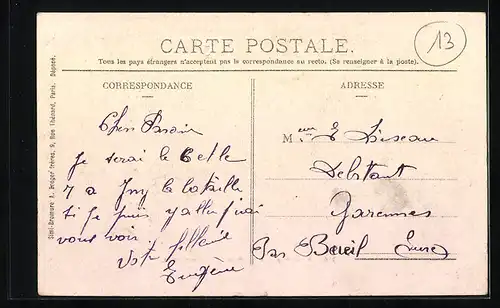 13
CARTE POSTALE.
Tous les pays étrangers n'acceptent pas la correspondance au verso. (Se renseigner à la poste).
CORRESPONDANCE
ADRESSE
Simi-Bromure A. Bréger frères, 9, Rue Thénard, Paris. Déposé.
Cher Parrain
Je serai le
7 a Ivry la bataille
si je puis y aller j'irai
vous voir
Votre filleule
Eugénie
M
Débitant
Garennes
Par Bueil Eure